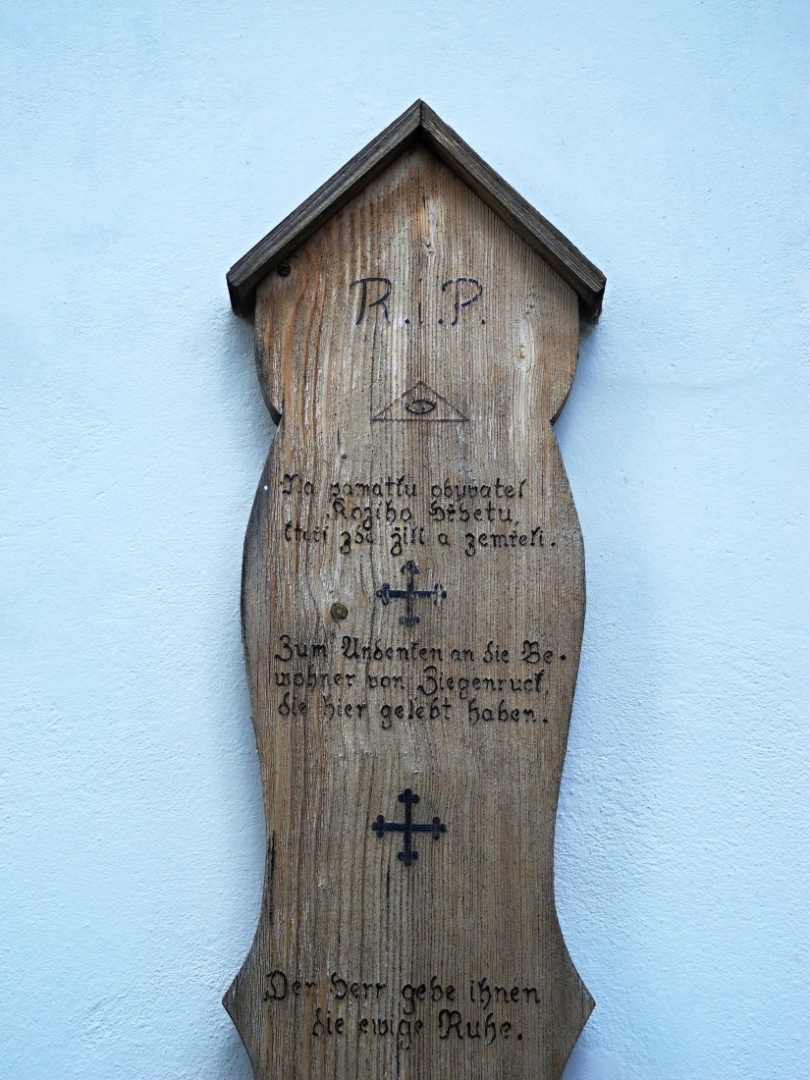 R.I.P.
Na památku obyvatel
Kozího hřbetu,
kteří zde žili a zemřeli.
Zum Andenken an die Be-
wohner von Ziegenruck,
die hier gelebt haben.
Der Herr gebe ihnen
die ewige Ruhe.